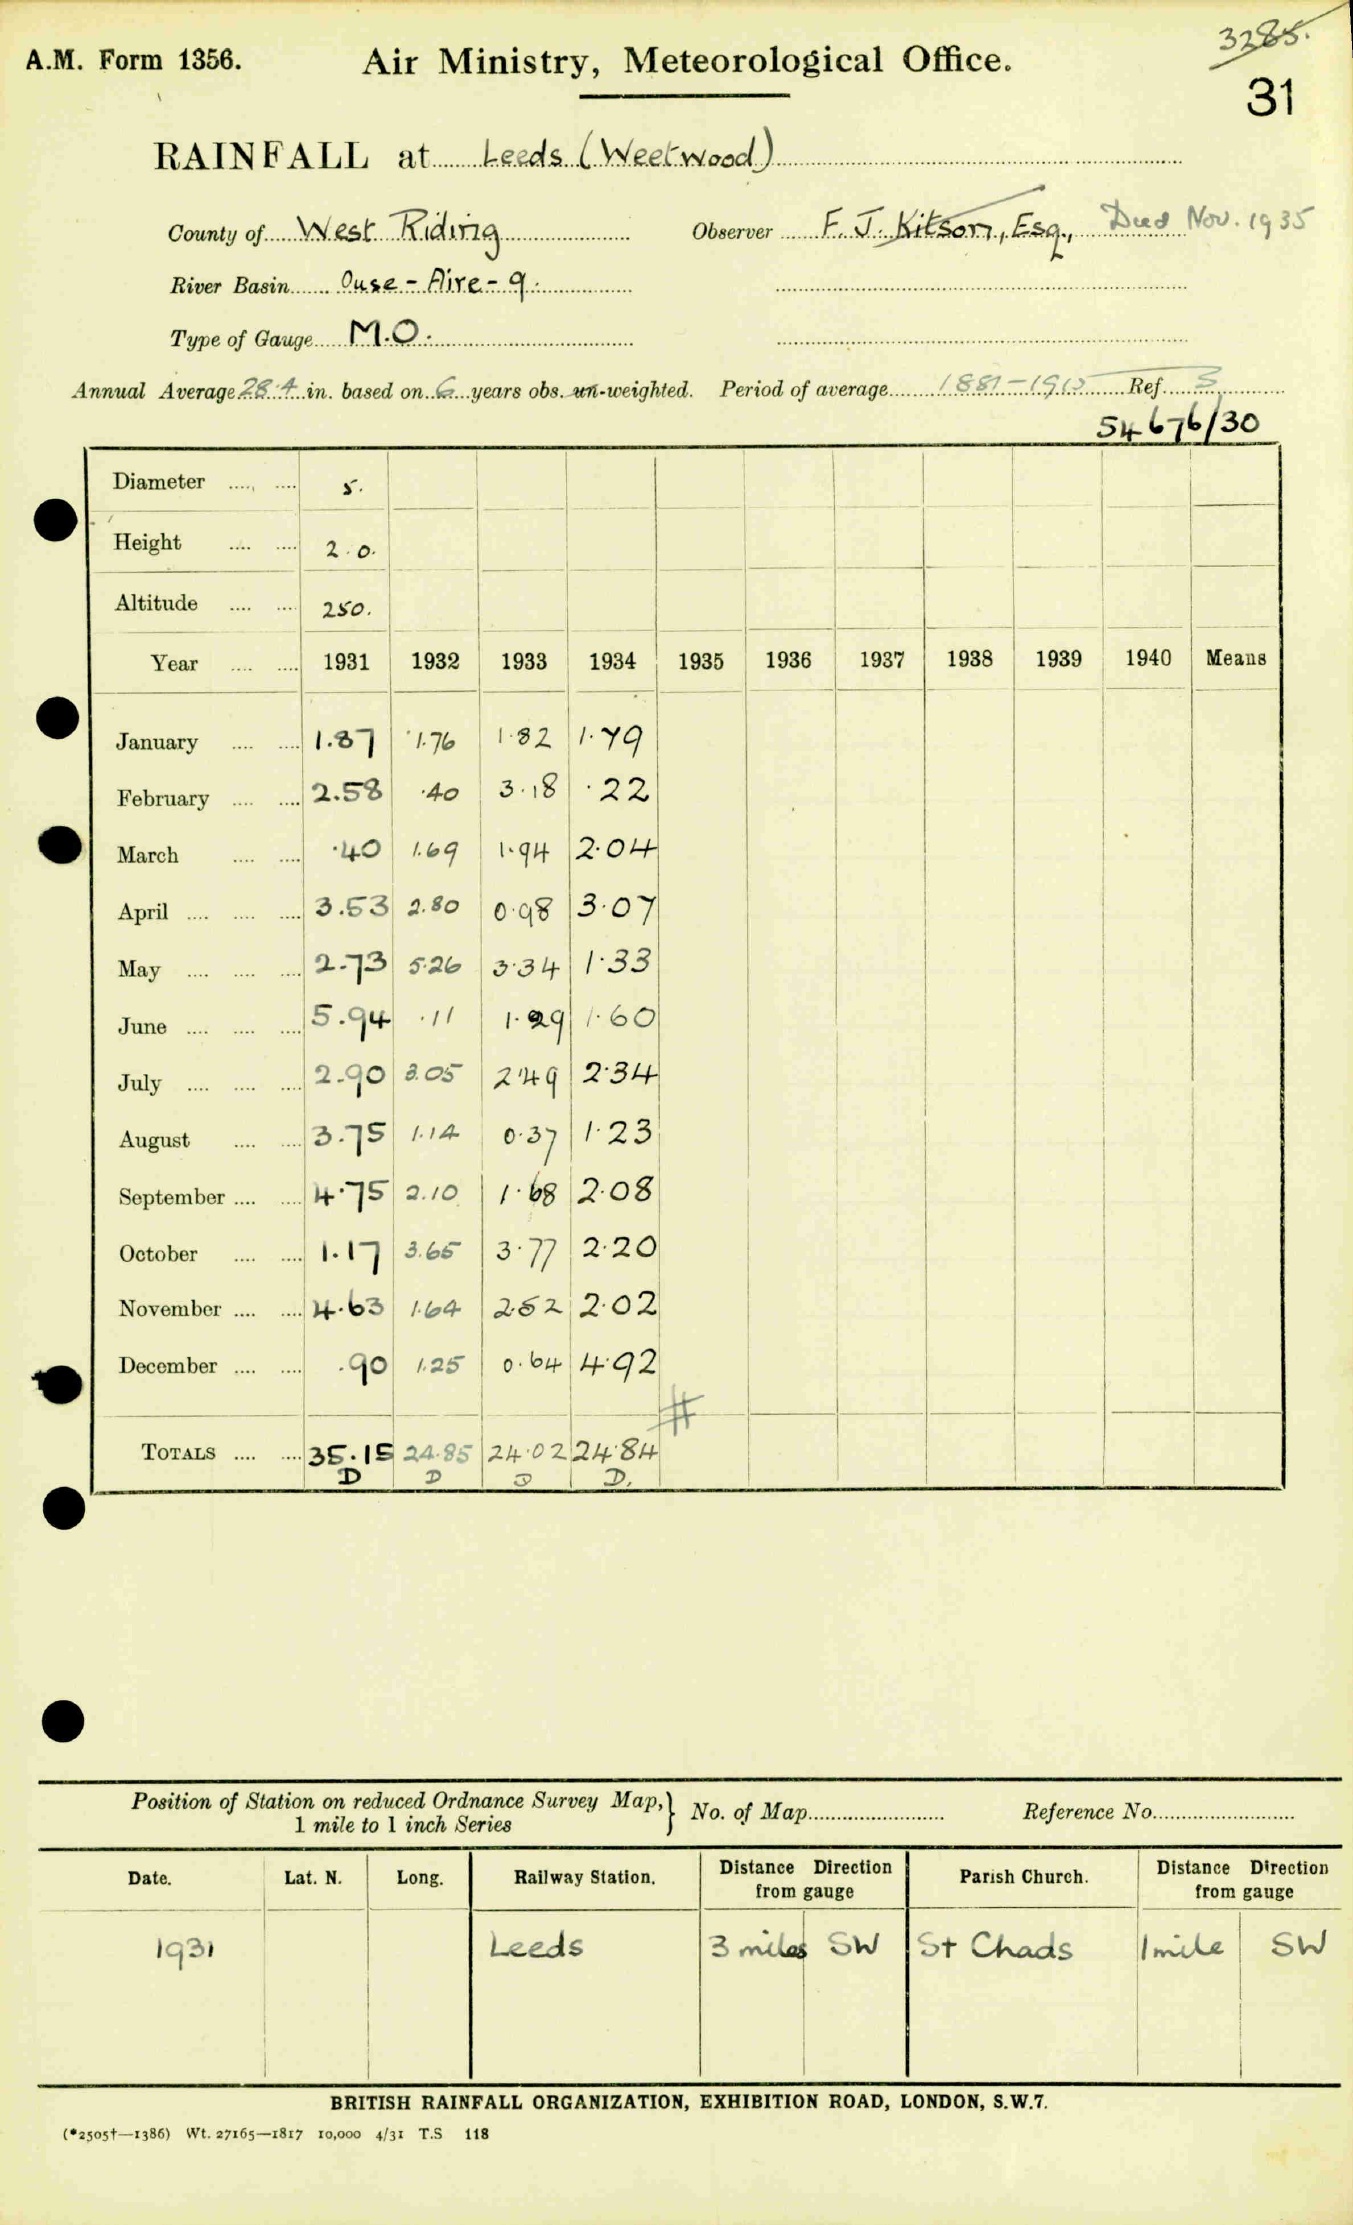 3285.
A.M. Form 1356. Air Ministry, Meteorological Office.
31
RAINFALL at Leeds (Weetwood)
County of West Riding Observer F. J. Kitson, Esq., Died Nov. 1935
River Basin Ouse - Aire - 9.
Type of Gauge M.O.
Annual Average 28.4 in. based on 6 years obs. un-weighted. Period of average 1881-1915 Ref. 3
54676/30
Diameter 5.
Height 2.0.
Altitude 250.
Year 1931 1932 1933 1934 1935 1936 1937 1938 1939 1940 Means
January 1.87 1.76 1.82 1.79
February 2.58 .40 3.18 .22
March .40 1.69 1.94 2.04
April 3.53 2.80 0.98 3.07
May 2.73 5.26 3.34 1.33
June 5.94 .11 1.29 1.60
July 2.90 3.05 2.49 2.34
August 3.75 1.14 0.37 1.23
September 4.75 2.10 1.68 2.08
October 1.17 3.65 3.77 2.20
November 4.63 1.64 2.52 2.02
December .90 1.25 0.64 4.92
#
TOTALS 35.15 24.85 24.02 24.84
D D D D.
Position of Station on reduced Ordnance Survey Map, } No. of Map Reference No.
1 mile to 1 inch Series
Date. Lat. N. Long. Railway Station. Distance Direction from gauge Parish Church. Distance Direction from gauge
1931 Leeds 3 miles SW St Chads 1 mile SW
BRITISH RAINFALL ORGANIZATION, EXHIBITION ROAD, LONDON, S.W.7.
(*2505†—1386) Wt. 27165—1817 10,000 4/31 T.S 118